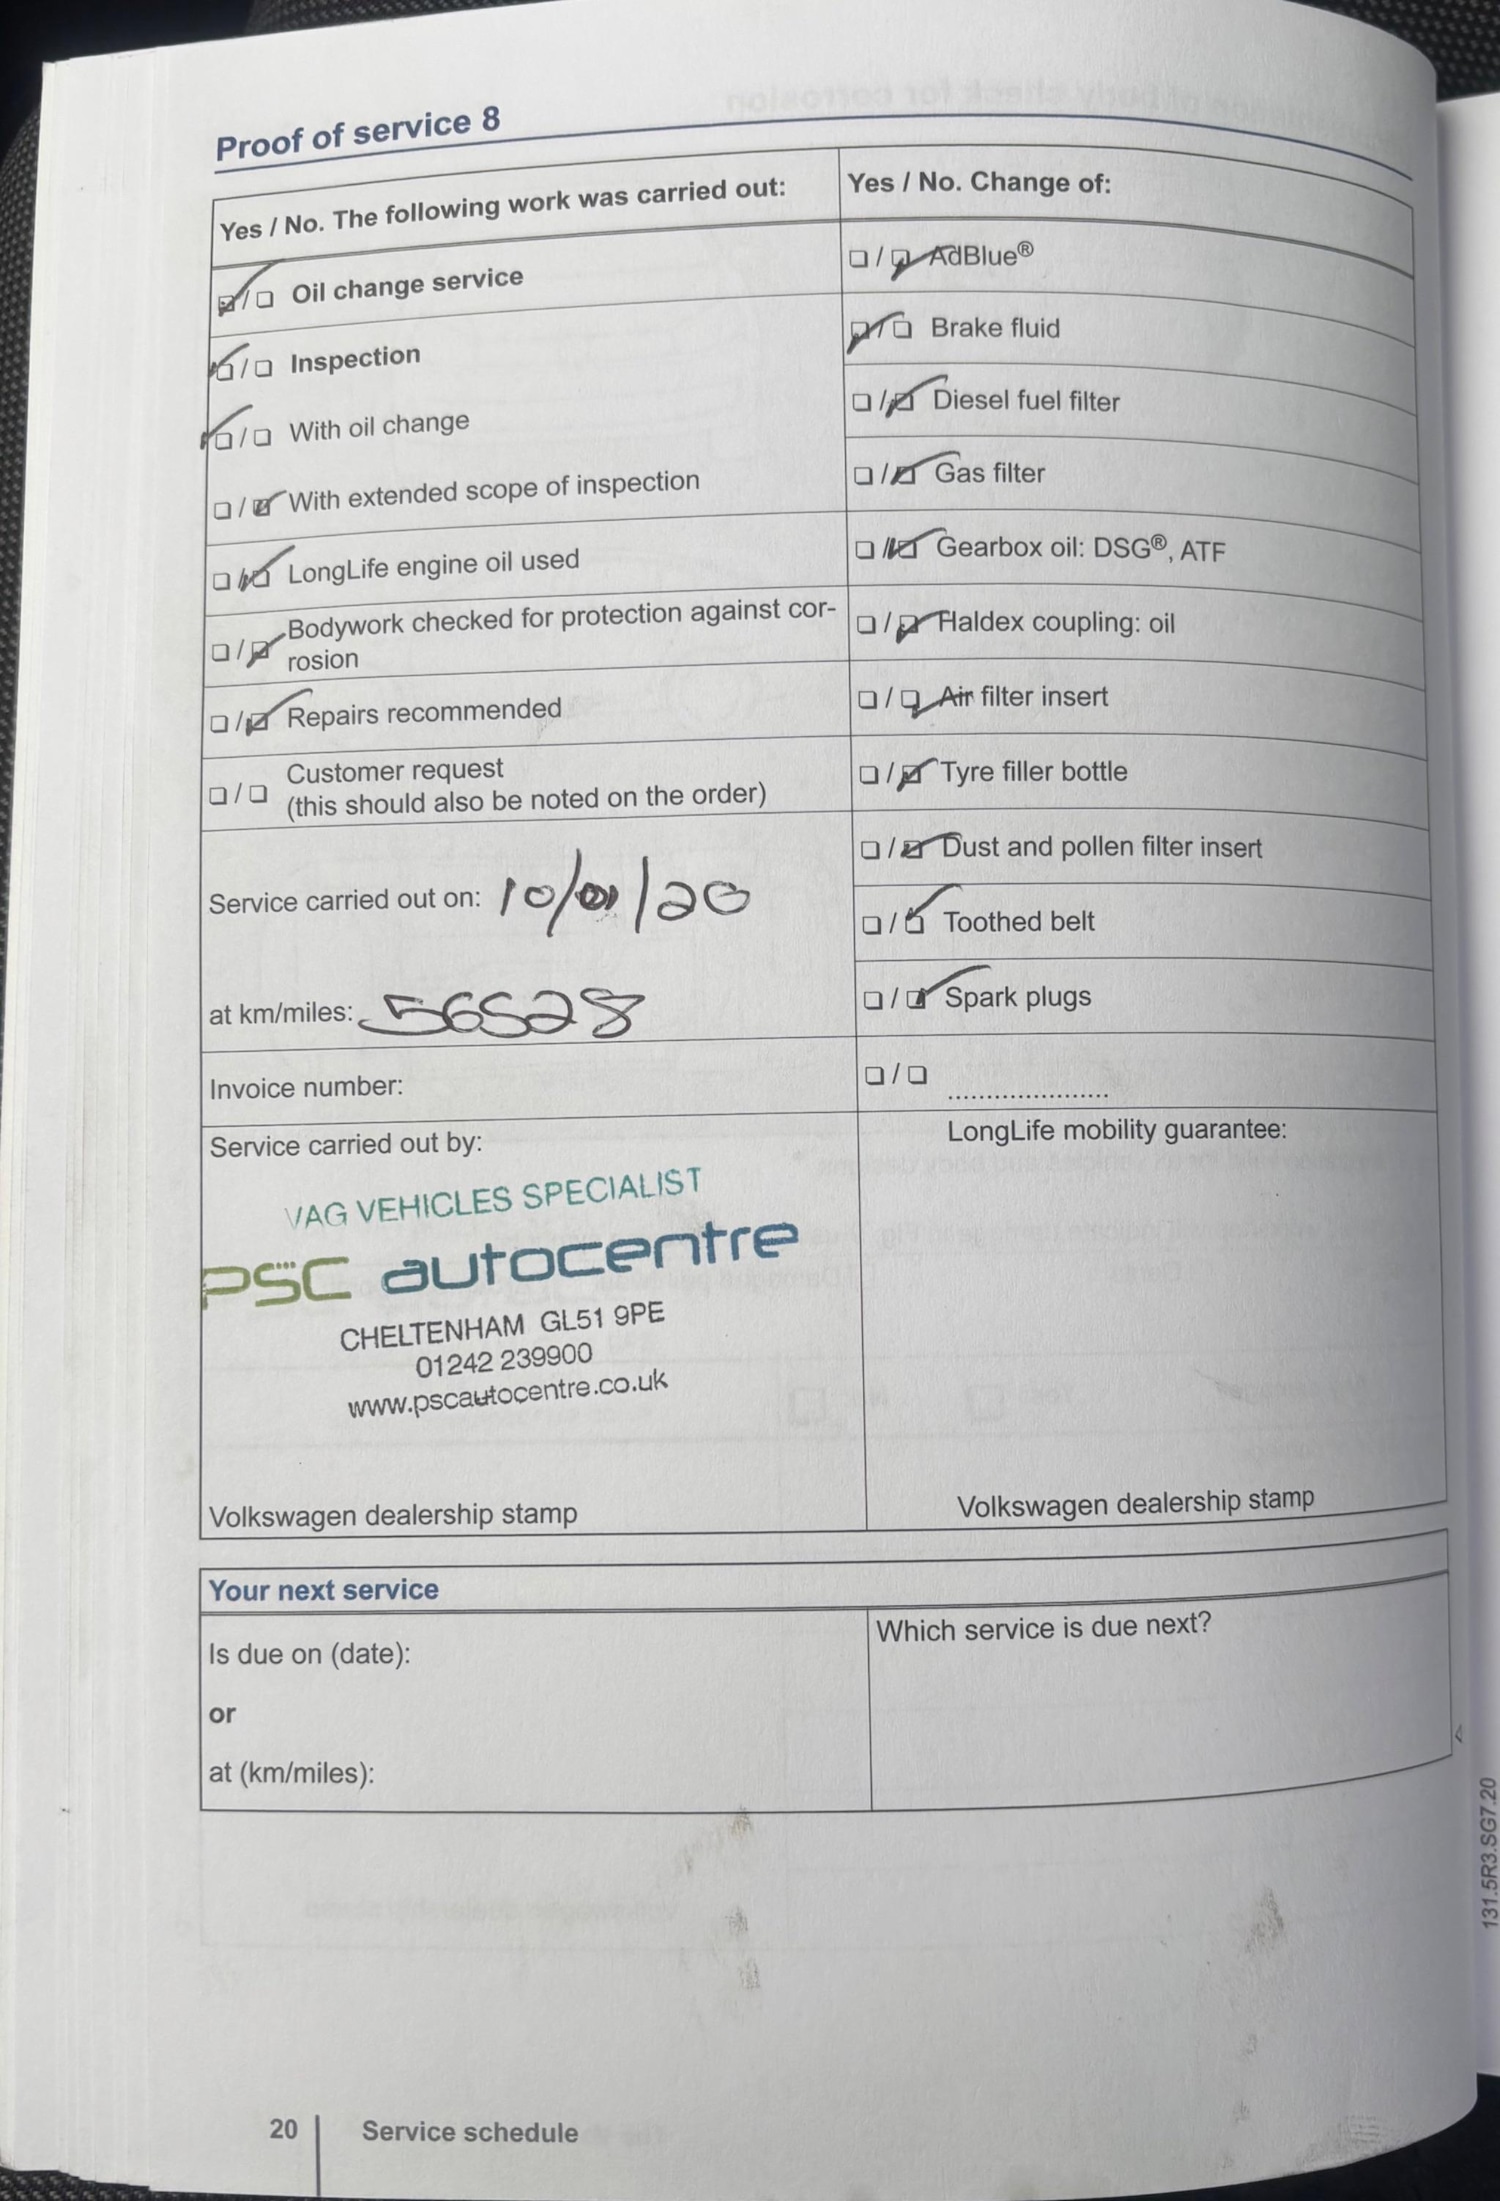 Proof of service 8
Yes / No. The following work was carried out:
Oil change service
Inspection
With oil change
With extended scope of inspection
LongLife engine oil used
Bodywork checked for protection against cor-
rosion
Repairs recommended
Customer request
(this should also be noted on the order)
Service carried out on: 10/01/20
at km/miles: 56528
Invoice number:
Service carried out by:
VAG VEHICLES SPECIALIST
PSC autocentre
CHELTENHAM GL51 9PE
01242 239900
www.pscautocentre.co.uk
Volkswagen dealership stamp
Yes / No. Change of:
AdBlue®
Brake fluid
Diesel fuel filter
Gas filter
Gearbox oil: DSG®, ATF
Haldex coupling: oil
Air filter insert
Tyre filler bottle
Dust and pollen filter insert
Toothed belt
Spark plugs
LongLife mobility guarantee:
Volkswagen dealership stamp
Your next service
Is due on (date):
or
at (km/miles):
Which service is due next?
131.5R3.SG7.20
20 Service schedule